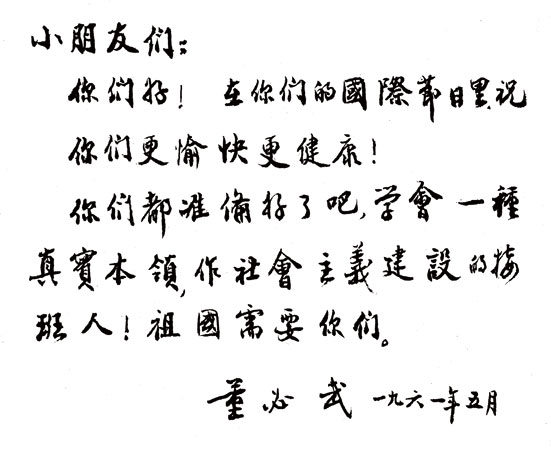 小朋友们：
你们好！在你们的國際節日里，祝
你们更愉快更健康！
你们都准备好了吧，学會一種
真實本領，作社會主義建設的接
班人！祖國需要你们。
董必武 一九六一年五月